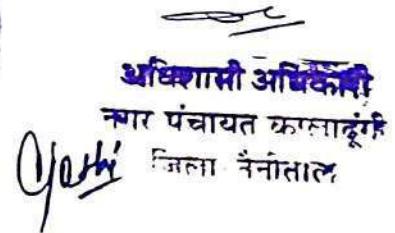 अधिशासी अधिकारी
नगर पंचायत कालाढूंगी
जिला नैनीताल